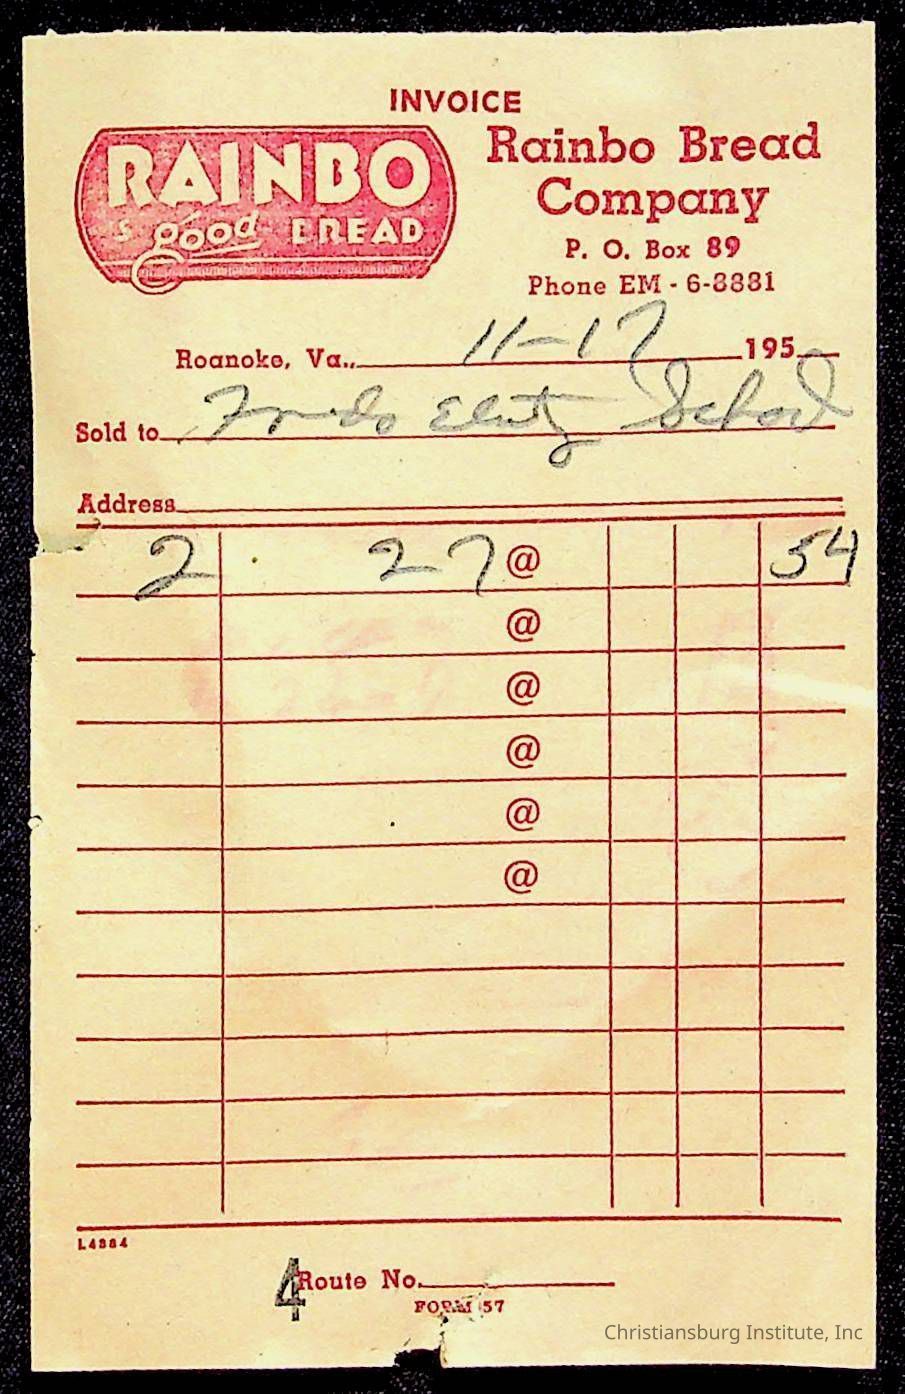 INVOICE
RAINBO
is good BREAD
Rainbo Bread
Company
P. O. Box 89
Phone EM - 6-8881
Roanoke, Va., 11-17 195
Sold to School
Address
2 27 @ 54
@
@
@
@
@
L4884
4 Route No.
FORM 57
Christiansburg Institute, Inc